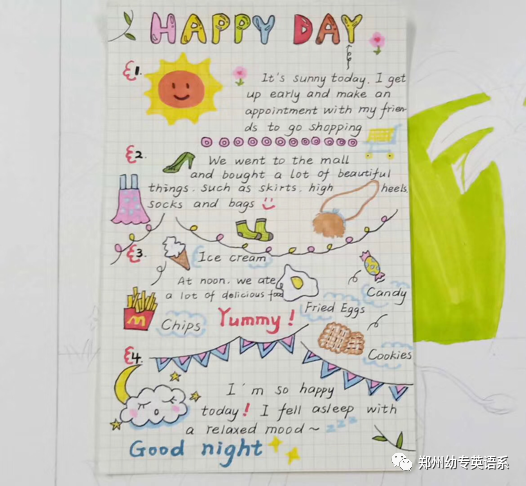 HAPPY DAY
1.
It's sunny today. I get
up early and make an
appointment with my frien
ds to go shopping
2.
We went to the mall
and bought a lot of beautiful
things. such as skirts. high heels.
socks and bags
3.
Ice cream
At noon, we ate
a lot of delicious food
Fried Eggs
Candy
Chips
Yummy!
Cookies
4.
I'm so happy
today! I fell asleep with
a relaxed mood~ zzz
Good night
郑州幼专英语系